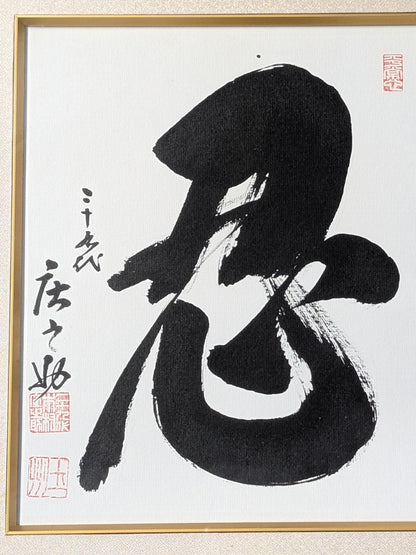 忍
二十九代
庄之助